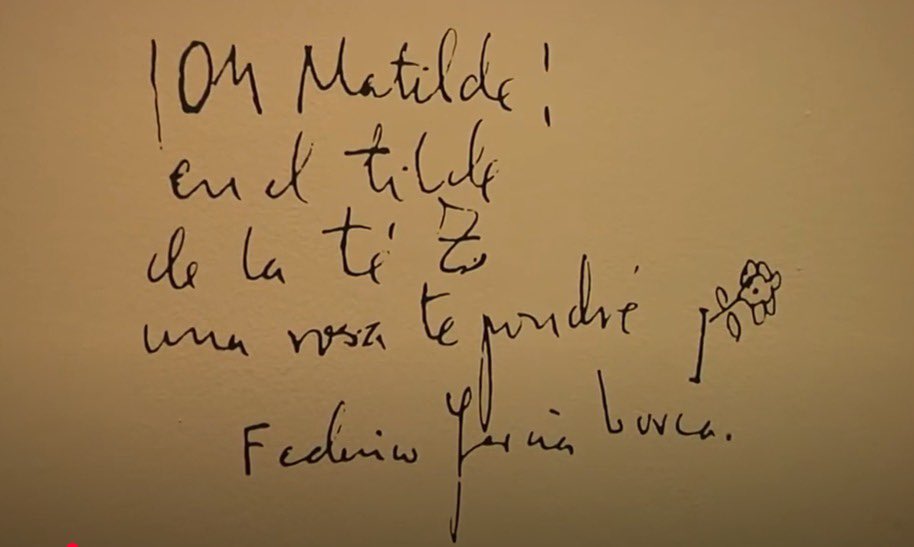 ¡Oh Matilde!
en el tilde
de la té Z
una rosa te pondré
Federico García Lorca.